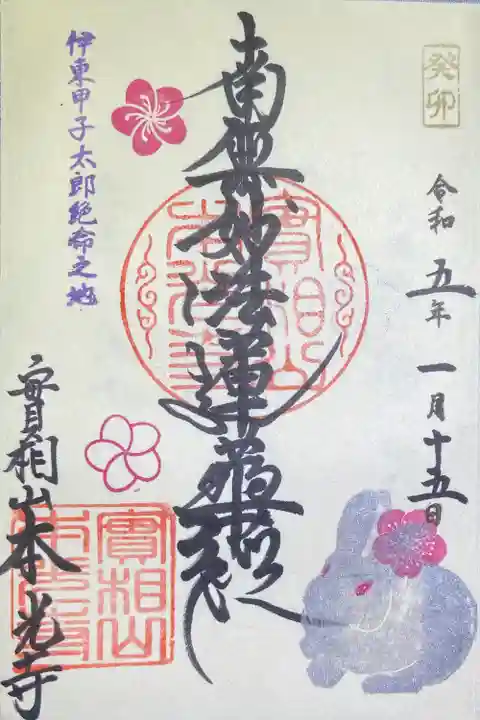 癸卯
令和五年一月十五日
南無妙法蓮華経
實相山
伊東甲子太郎絶命之地
實相山本光寺
實相山